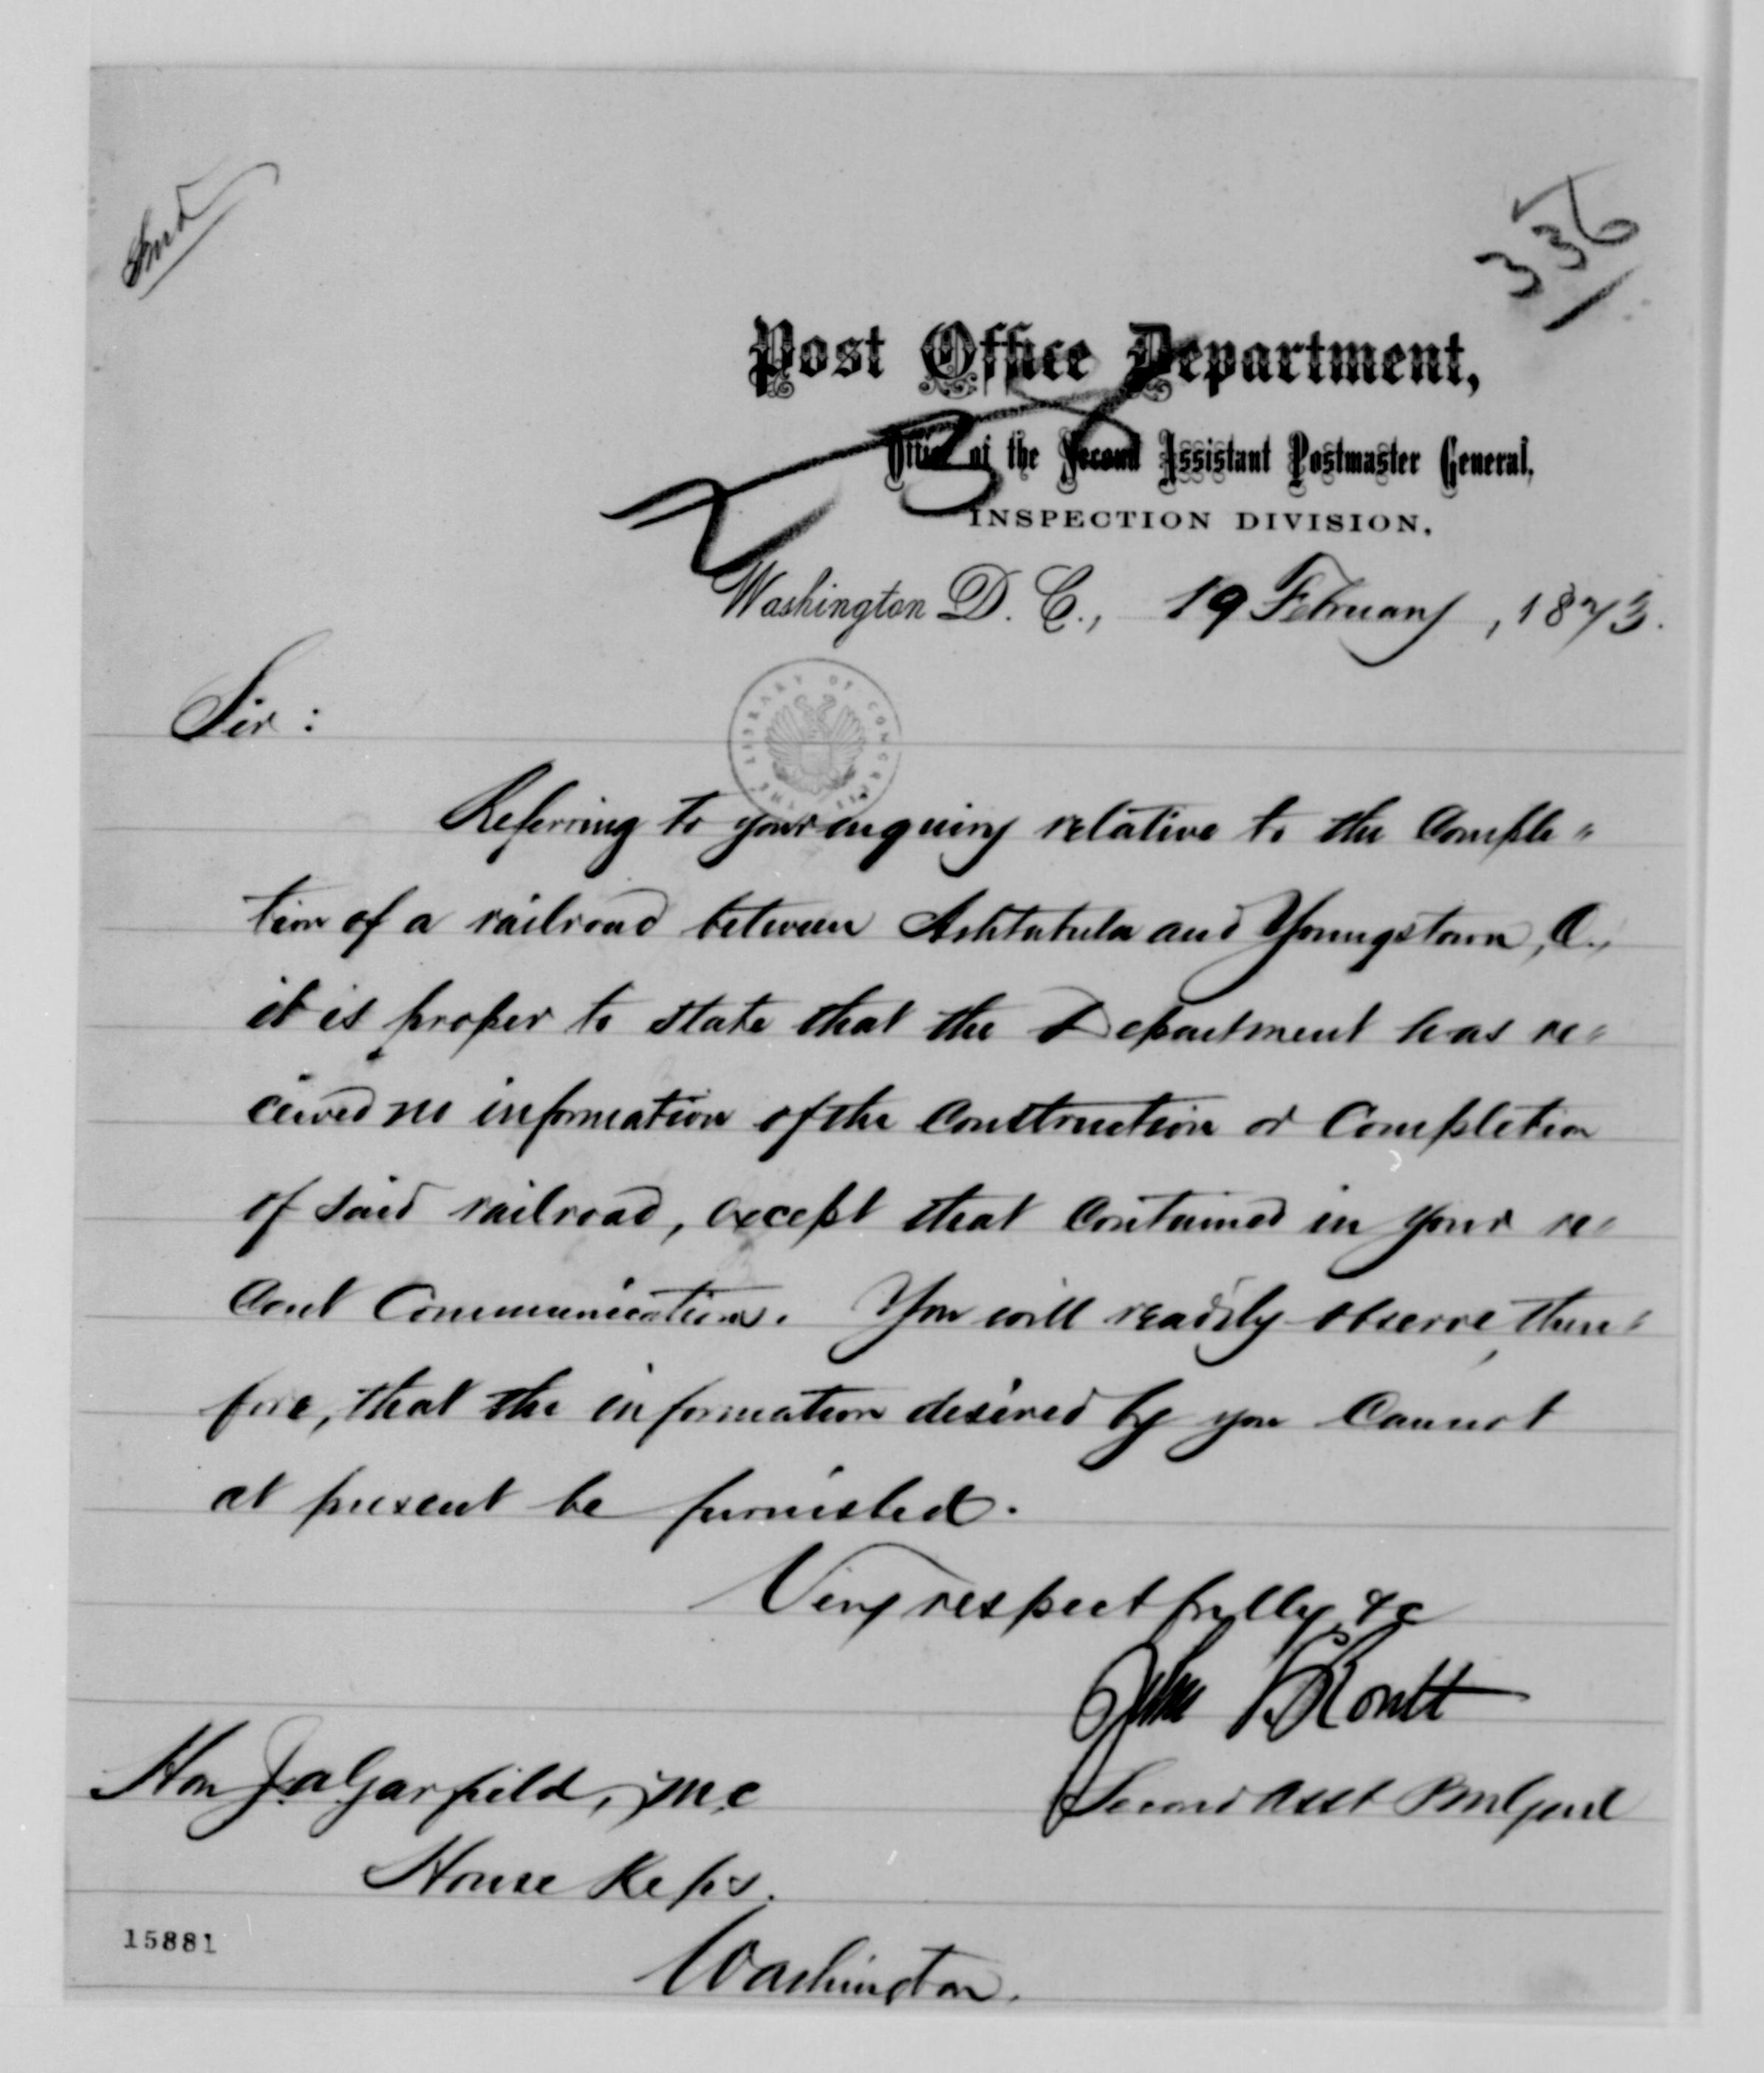 336
Post Office Department,
Office of the Second Assistant Postmaster General,
INSPECTION DIVISION.
Washington D. C., 19 February, 1873.
Sir :
THE LIBRARY OF CONGRESS
Referring to your inquiry relative to the comple"
tion of a railroad between Ashtabula and Youngstown, O.,
it is proper to state that the Department has re"
ceived no information of the construction or completion
of said railroad, except that contained in your re"
cent communication. You will readily observe, there"
fore, that the information desired by you cannot
at present be furnished.
Very respectfully, &c
John L. Routt
Second Asst PmGenl
Hon J. A. Garfield, M.C
House Reps.
Washington.
15881